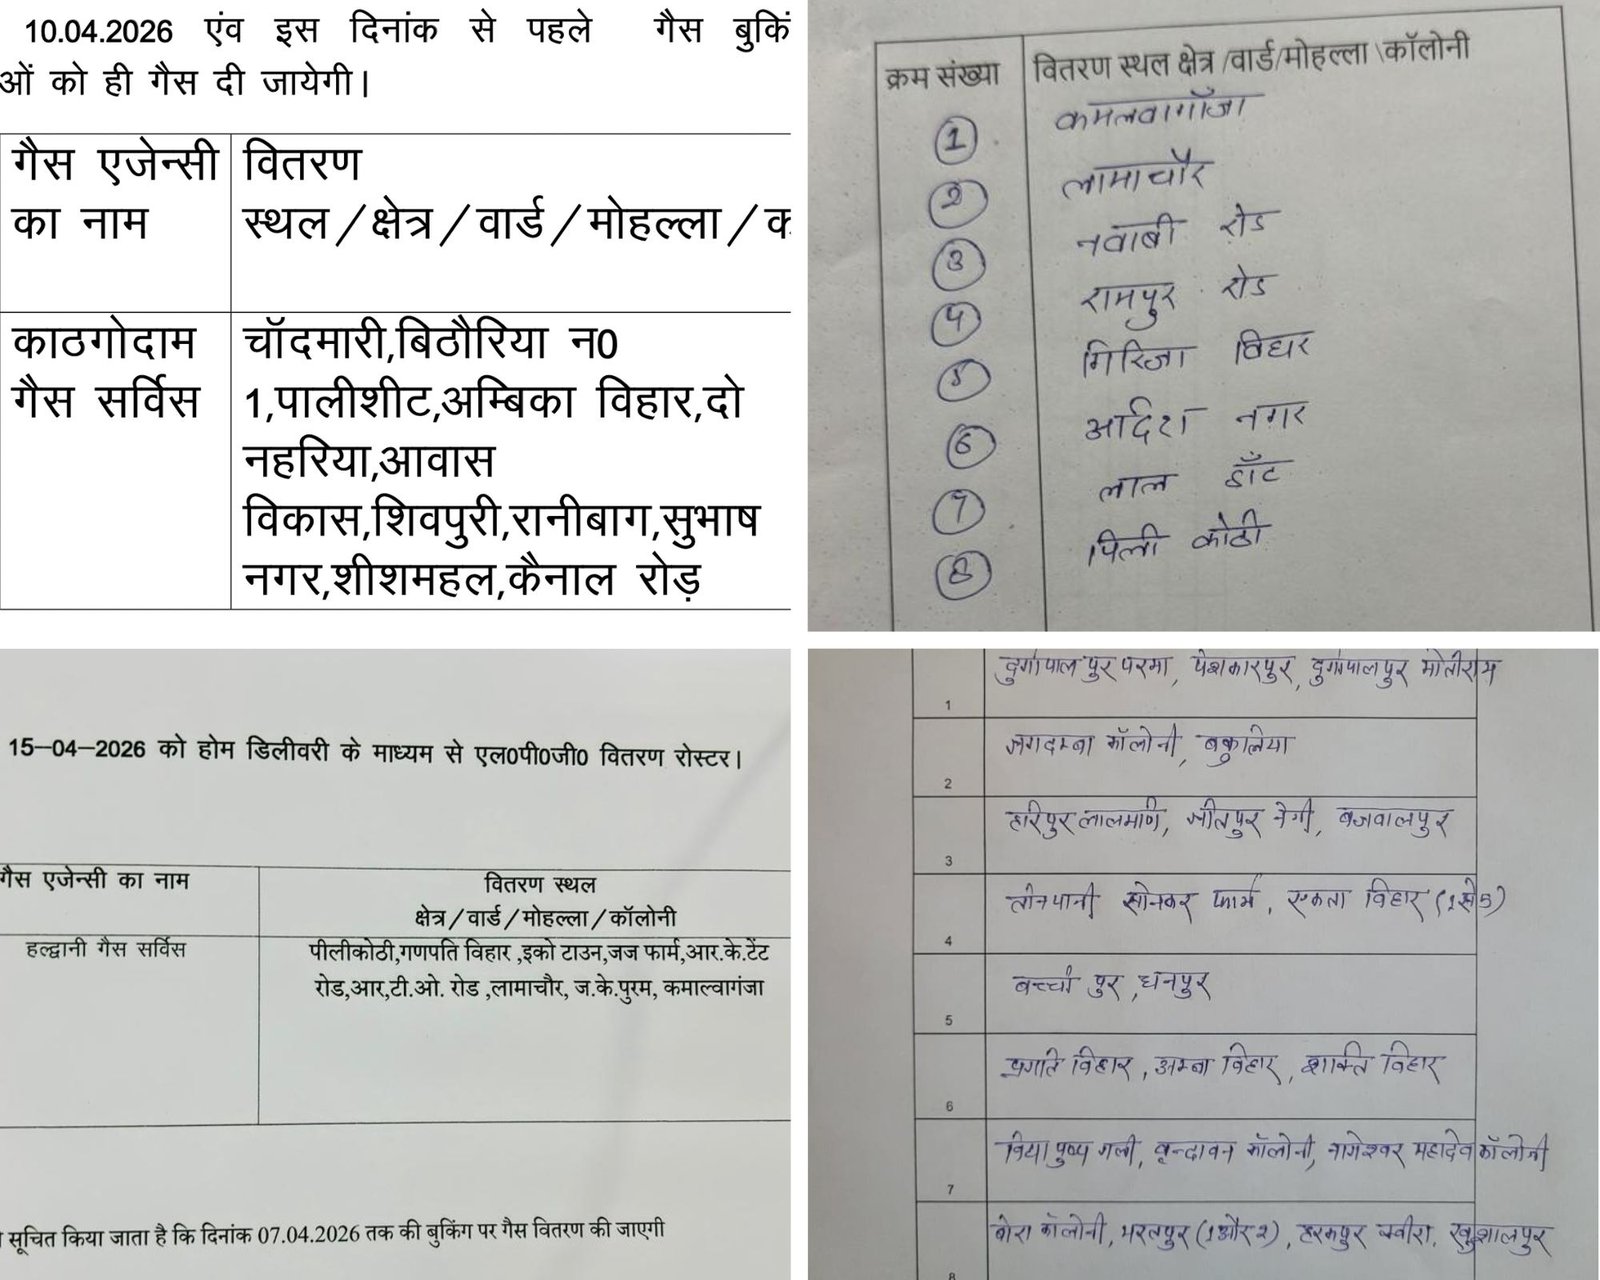 10.04.2026 एंव इस दिनांक से पहले गैस बुकिं
ओं को ही गैस दी जायेगी।
गैस एजेन्सी
का नाम
वितरण
स्थल/क्षेत्र/वार्ड/मोहल्ला/क
काठगोदाम
गैस सर्विस
चॉदमारी,बिठौरिया न0
1,पालीशीट,अम्बिका विहार,दो
नहरिया,आवास
विकास,शिवपुरी,रानीबाग,सुभाष
नगर,शीशमहल,कैनाल रोड़
क्रम संख्या वितरण स्थल क्षेत्र /वार्ड/मोहल्ला \कॉलोनी
1 कमलवागाँजा
2 लामाचौर
3 नवाबी रोड
4 रामपुर रोड
5 गिरिजा विहार
6 आर्दश नगर
7 लाल डाँट
8 पिली कोठी
15-04-2026 को होम डिलीवरी के माध्यम से एल0पी0जी0 वितरण रोस्टर।
गैस एजेन्सी का नाम
वितरण स्थल
क्षेत्र/वार्ड/मोहल्ला/कॉलोनी
हल्द्वानी गैस सर्विस
पीलीकोठी,गणपति विहार ,इको टाउन,जज फार्म,आर.के.टेंट
रोड,आर,टी.ओ. रोड ,लामाचौर, ज.के.पुरम, कमाल्वागंजा
सूचित किया जाता है कि दिनांक 07.04.2026 तक की बुकिंग पर गैस वितरण की जाएगी
1 दुर्गापाल पुर परमा, पेशकारपुर, दुर्गापालपुर मोतीराम
2 जगदम्बा कॉलोनी, बकुलिया
3 हरिपुर लालमणि, जीतपुर नेगी, बजवालपुर
4 तीनपानी सोनकर फार्म, एकता विहार (1से5)
5 बच्ची पुर, धनपुर
6 प्रगति विहार, अम्बा विहार, शक्ति विहार
7 पुष्प गली, वृन्दावन कॉलोनी, नागेश्वर महादेव कॉलोनी
8 बोरा कॉलोनी, भरतपुर (1और2), हरकपुर क्वीरा, खुशालपुर